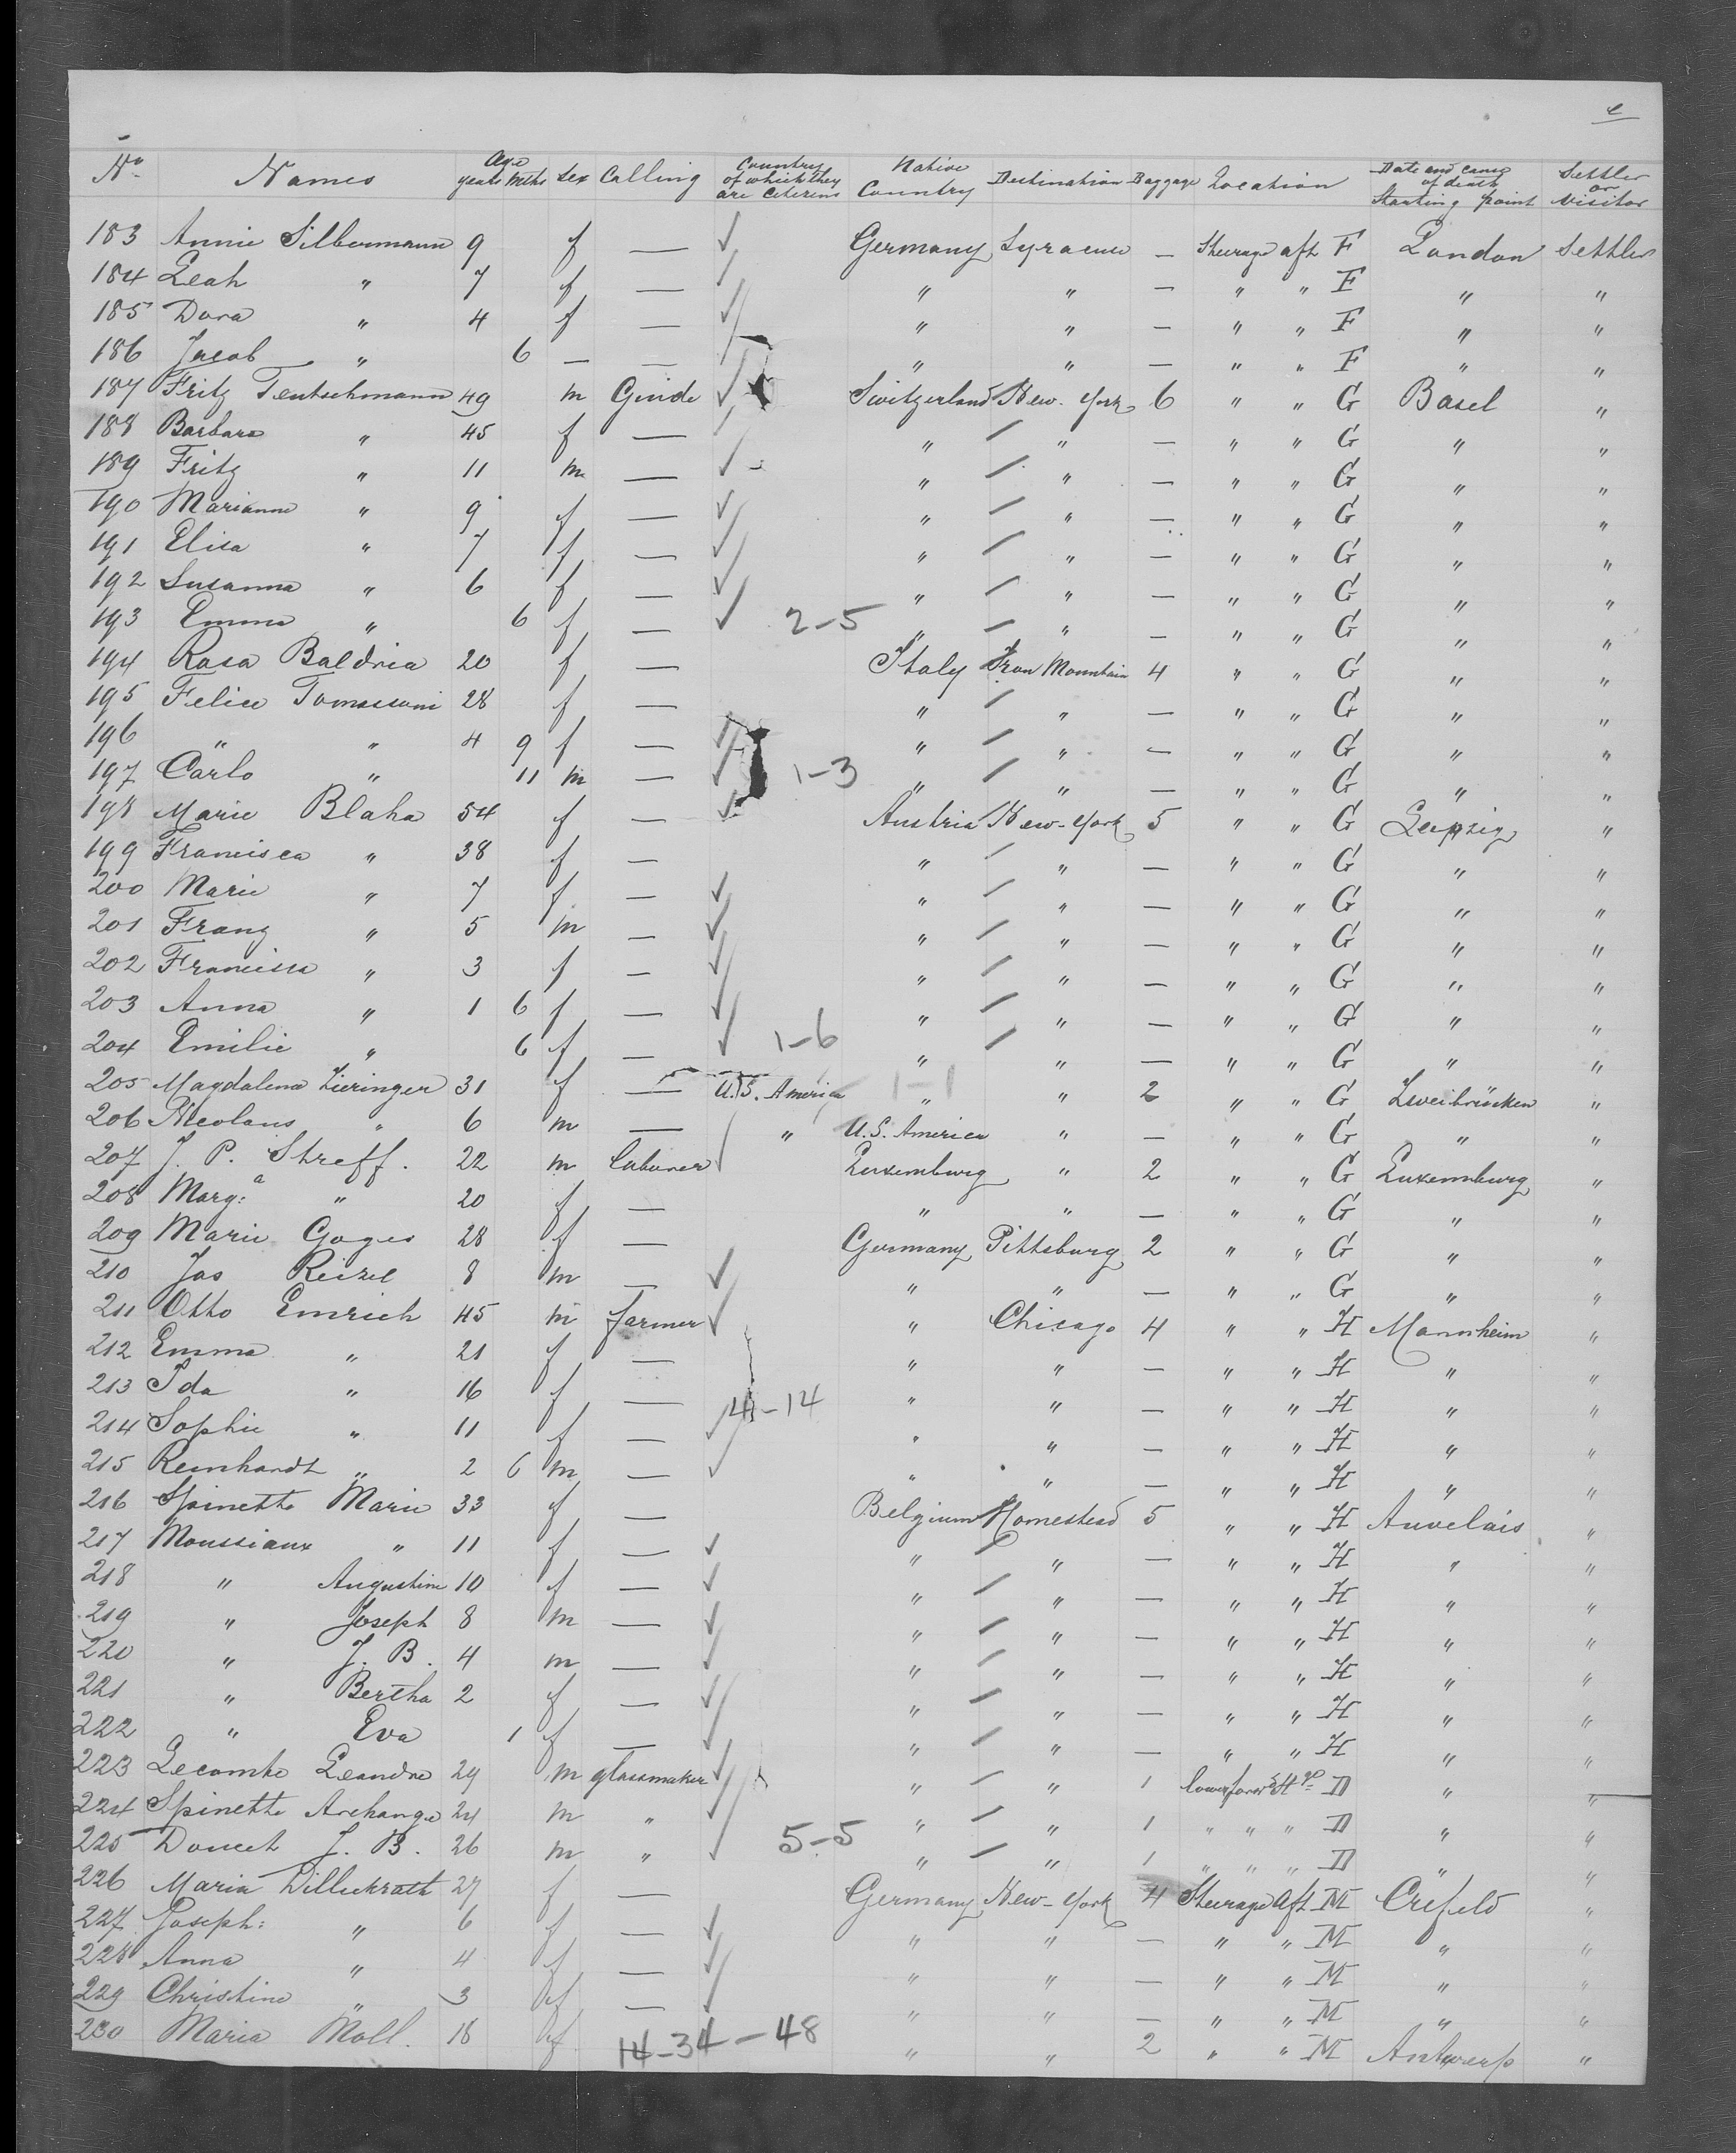 e
No. Names Age years Mths Sex Calling Country of which they are Citizens Native Country Destination Baggage Location Date and cause of death Starting point Settler or Visitor
183 Annie Silbermann 9 f — ✓ Germany Syracuse — Steerage aft F London Settler
184 Leah " 7 f — ✓ " " — " " F " "
185 Dora " 4 f — ✓ " " — " " F " "
186 Jacob " 6 — — ✓ " " — " " F " "
187 Fritz Teutschmann 49 m Guide ✓ Switzerland New-York 6 " " G Basel "
188 Barbara " 45 f — " " — " " G " "
189 Fritz " 11 m — ✓ " " — " " G " "
190 Marianne " 9 f — ✓ " " — " " G " "
191 Elisa " 7 f — ✓ " " — " " G " "
192 Susanna " 6 f — ✓ " " — " " G " "
193 Emma " 6 f — ✓ 2-5 " " — " " G " "
194 Rasa Baldria 20 f — Italy Iron Mountain 4 " " G " "
195 Felice Tomassoni 28 f — " " — " " G " "
196 " " 4 9 f — ✓ " " — " " G " "
197 Carlo " 11 m — ✓ 1-3 " " — " " G " "
198 Marie Blaha 54 f — ✓ Austria New-York 5 " " G Leipzig "
199 Francisca " 38 f — " " — " " G " "
200 Marie " 7 f — ✓ " " — " " G " "
201 Franz " 5 m — ✓ " " — " " G " "
202 Francisca " 3 f — ✓ " " — " " G " "
203 Anna " 1 6 f — ✓ " " — " " G " "
204 Emilie " 6 f — ✓ 1-6 " " — " " G " "
205 Magdalena Zieringer 31 f — U.S. America 1-1 " " 2 " " G Zweibrücken "
206 Nicolaus " 6 m — " U.S. America " — " " G " "
207 J. P. Streff. 22 m laborer ✓ Luxemburg " 2 " " G Luxemburg "
208 Marg:a " 20 f — " " — " " G " "
209 Marie Goges 28 f — Germany Pittsburg 2 " " G " "
210 Jos Reizel 8 m — ✓ " " — " " G " "
211 Otto Emrich 45 m farmer ✓ " Chicago 4 " " H Mannheim "
212 Emma " 21 f — " " — " " H " "
213 Ida " 16 f — 4-14 " " — " " H " "
214 Sophie " 11 f — ✓ " " — " " H " "
215 Reinhardt " 2 6 m — ✓ " " — " " H " "
216 Spinette Marie 33 f — Belgium Homestead 5 " " H Auvelais "
217 Moussiaux " 11 f — ✓ " " — " " H " "
218 " Augustine 10 f — ✓ " " — " " H " "
219 " Joseph 8 m — ✓ " " — " " H " "
220 " J. B. 4 m — ✓ " " — " " H " "
221 " Bertha 2 f — ✓ " " — " " H " "
222 " Eva 1 f — ✓ " " — " " H " "
223 Lecomte Leandre 29 m glassmaker ✓ " " 1 lower forw D " "
224 Spinette Archange 24 m " ✓ " " 1 " " " D " "
225 Doucet J. B. 26 m " ✓ 5-5 " " 1 " " " D " "
226 Maria Dillickrath 27 f — Germany New-York 4 Steerage Aft M Crefeld "
227 Joseph: " 6 f — ✓ " " — " " M " "
228 Anna " 4 f — ✓ " " — " " M " "
229 Christine " 3 f — ✓ " " — " " M " "
230 Maria Moll. 18 f 14-34-48 " " 2 " " M Antwerp "